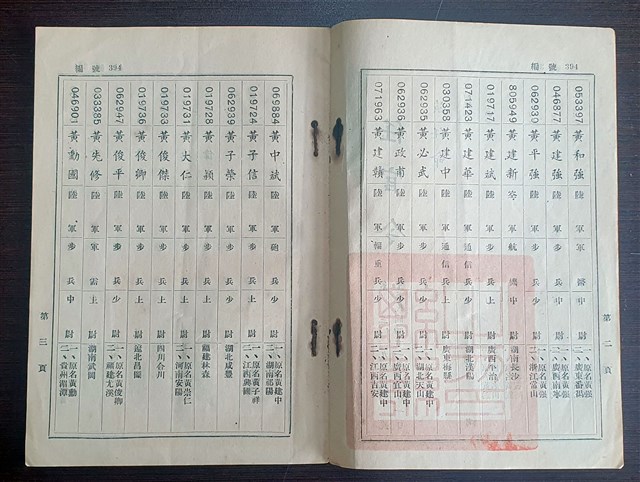 編號 394
053397 黃和強 陸軍 中尉 一、原名黃強 二、廣東番禺
046877 黃建強 陸軍 步兵中尉 一、原名黃強 二、廣西南寧
062930 黃平強 陸軍 步兵少尉 一、原名黃強 二、浙江常山
805949 黃建新 陸軍 航 中尉 湖南長沙
019717 黃建誠 陸軍 步兵上尉 廣西平治
071423 黃建華 陸軍 通信兵少尉 湖北漢陽
030358 黃建中 陸軍 通信兵上尉 廣東梅縣
062935 黃必武 陸軍 步兵少尉 一、原名黃建中 二、湖北天山
062936 黃政甫 陸軍 步兵少尉 一、原名黃建中 二、廣西宜山
071963 黃建贛 陸軍 輜重兵少尉 一、原名黃建中 二、江西吉安
第二頁
編號 394
069884 黃中誠 陸軍 砲兵少尉 一、原名黃建中 二、湖南祁陽
019724 黃子信 陸軍 步兵上尉 一、原名黃子祥 二、江西興國
062939 黃子榮 陸軍 步兵少尉 湖北咸豐
019728 黃 穎 陸軍 步兵上尉 福建林森
019731 黃大仁 陸軍 步兵上尉 一、原名黃崇仁 二、河南安陽
019733 黃俊傑 陸軍 步兵上尉 四川合川
019736 黃俊卿 陸軍 步兵上尉 遼北昌圖
062947 黃俊平 陸軍 步兵少尉 一、原名黃俊卿 二、福建尤溪
033835 黃先修 陸軍 上尉 湖南武岡
046901 黃勳國 陸軍 步兵中尉 一、原名黃勳 二、貴州湄潭
第三頁